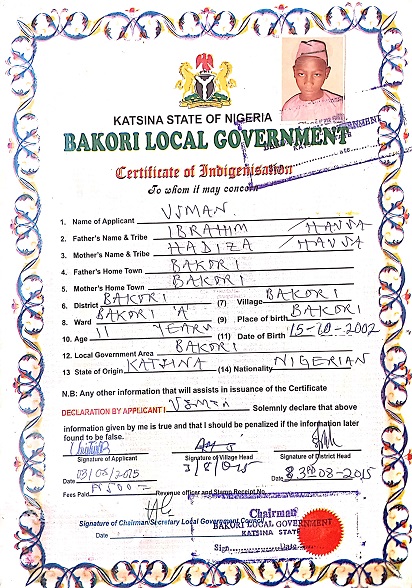 KATSINA STATE OF NIGERIA
BAKORI LOCAL GOVERNMENT
Certificate of Indigenisation
To whom it may concern
1. Name of Applicant USMAN
2. Father's Name & Tribe IBRAHIM / HAUSA
3. Mother's Name & Tribe HADIZA / HAUSA
4. Father's Home Town BAKORI
5. Mother's Home Town BAKORI
6. District BAKORI (7) Village BAKORI
8. Ward BAKORI 'A' (9) Place of birth BAKORI
10. Age 11 YEARS (11) Date of Birth 15-10-2002
12. Local Government Area BAKORI
13 State of Origin KATSINA (14) Nationality NIGERIAN
N.B: Any other information that will assists in issuance of the Certificate
DECLARATION BY APPLICANT I USMAN Solemnly declare that above
information given by me is true and that I should be penalized if the information later
found to be false.
Signature of Applicant Signature of Village Head Signature of District Head
Date 03/08/2015 3/8/015 Date 3RD 08-2015
Fees Paid: ₦500= Revenue officer and Stamp Receipt No.
Signature of Chairman/Secretary Local Government Council
Date
Chairman
BAKORI LOCAL GOVERNMENT
KATSINA STATE
Sign Date